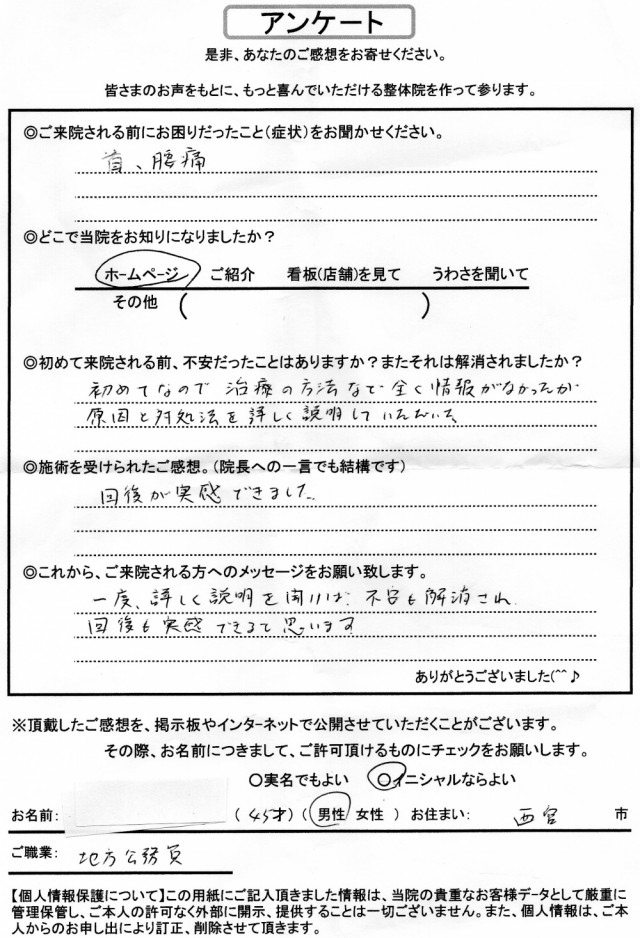 アンケート
是非、あなたのご感想をお寄せください。
皆さまのお声をもとに、もっと喜んでいただける整体院を作って参ります。
◎ご来院される前にお困りだったこと(症状)をお聞かせください。
首、腰痛
◎どこで当院をお知りになりましたか？
ホームページ ご紹介 看板(店舗)を見て うわさを聞いて
その他 ( )
◎初めて来院される前、不安だったことはありますか？またそれは解消されましたか？
初めてなので 治療の方法など全く情報がなかったが
原因と対処法を詳しく説明していただいた
◎施術を受けられたご感想。(院長への一言でも結構です)
回後が実感できました。
◎これから、ご来院される方へのメッセージをお願い致します。
一度、詳しく説明を聞けば 不安も解消され
回後も実感できると思います
ありがとうございました(^^♪
※頂戴したご感想を、掲示板やインターネットで公開させていただくことがございます。
その際、お名前につきまして、ご許可頂けるものにチェックをお願いします。
○実名でもよい ○イニシャルならよい
お名前: (45才) (男性 女性) お住まい: 西宮 市
ご職業: 地方公務員
【個人情報保護について】この用紙にご記入頂きました情報は、当院の貴重なお客様データとして厳重に
管理保管し、ご本人の許可なく外部に開示、提供することは一切ございません。また、個人情報は、ご本
人からのお申し出により訂正、削除させて頂きます。